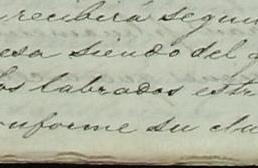 recibirá segun
esa siendo del
os labrados estr
onforme su cla